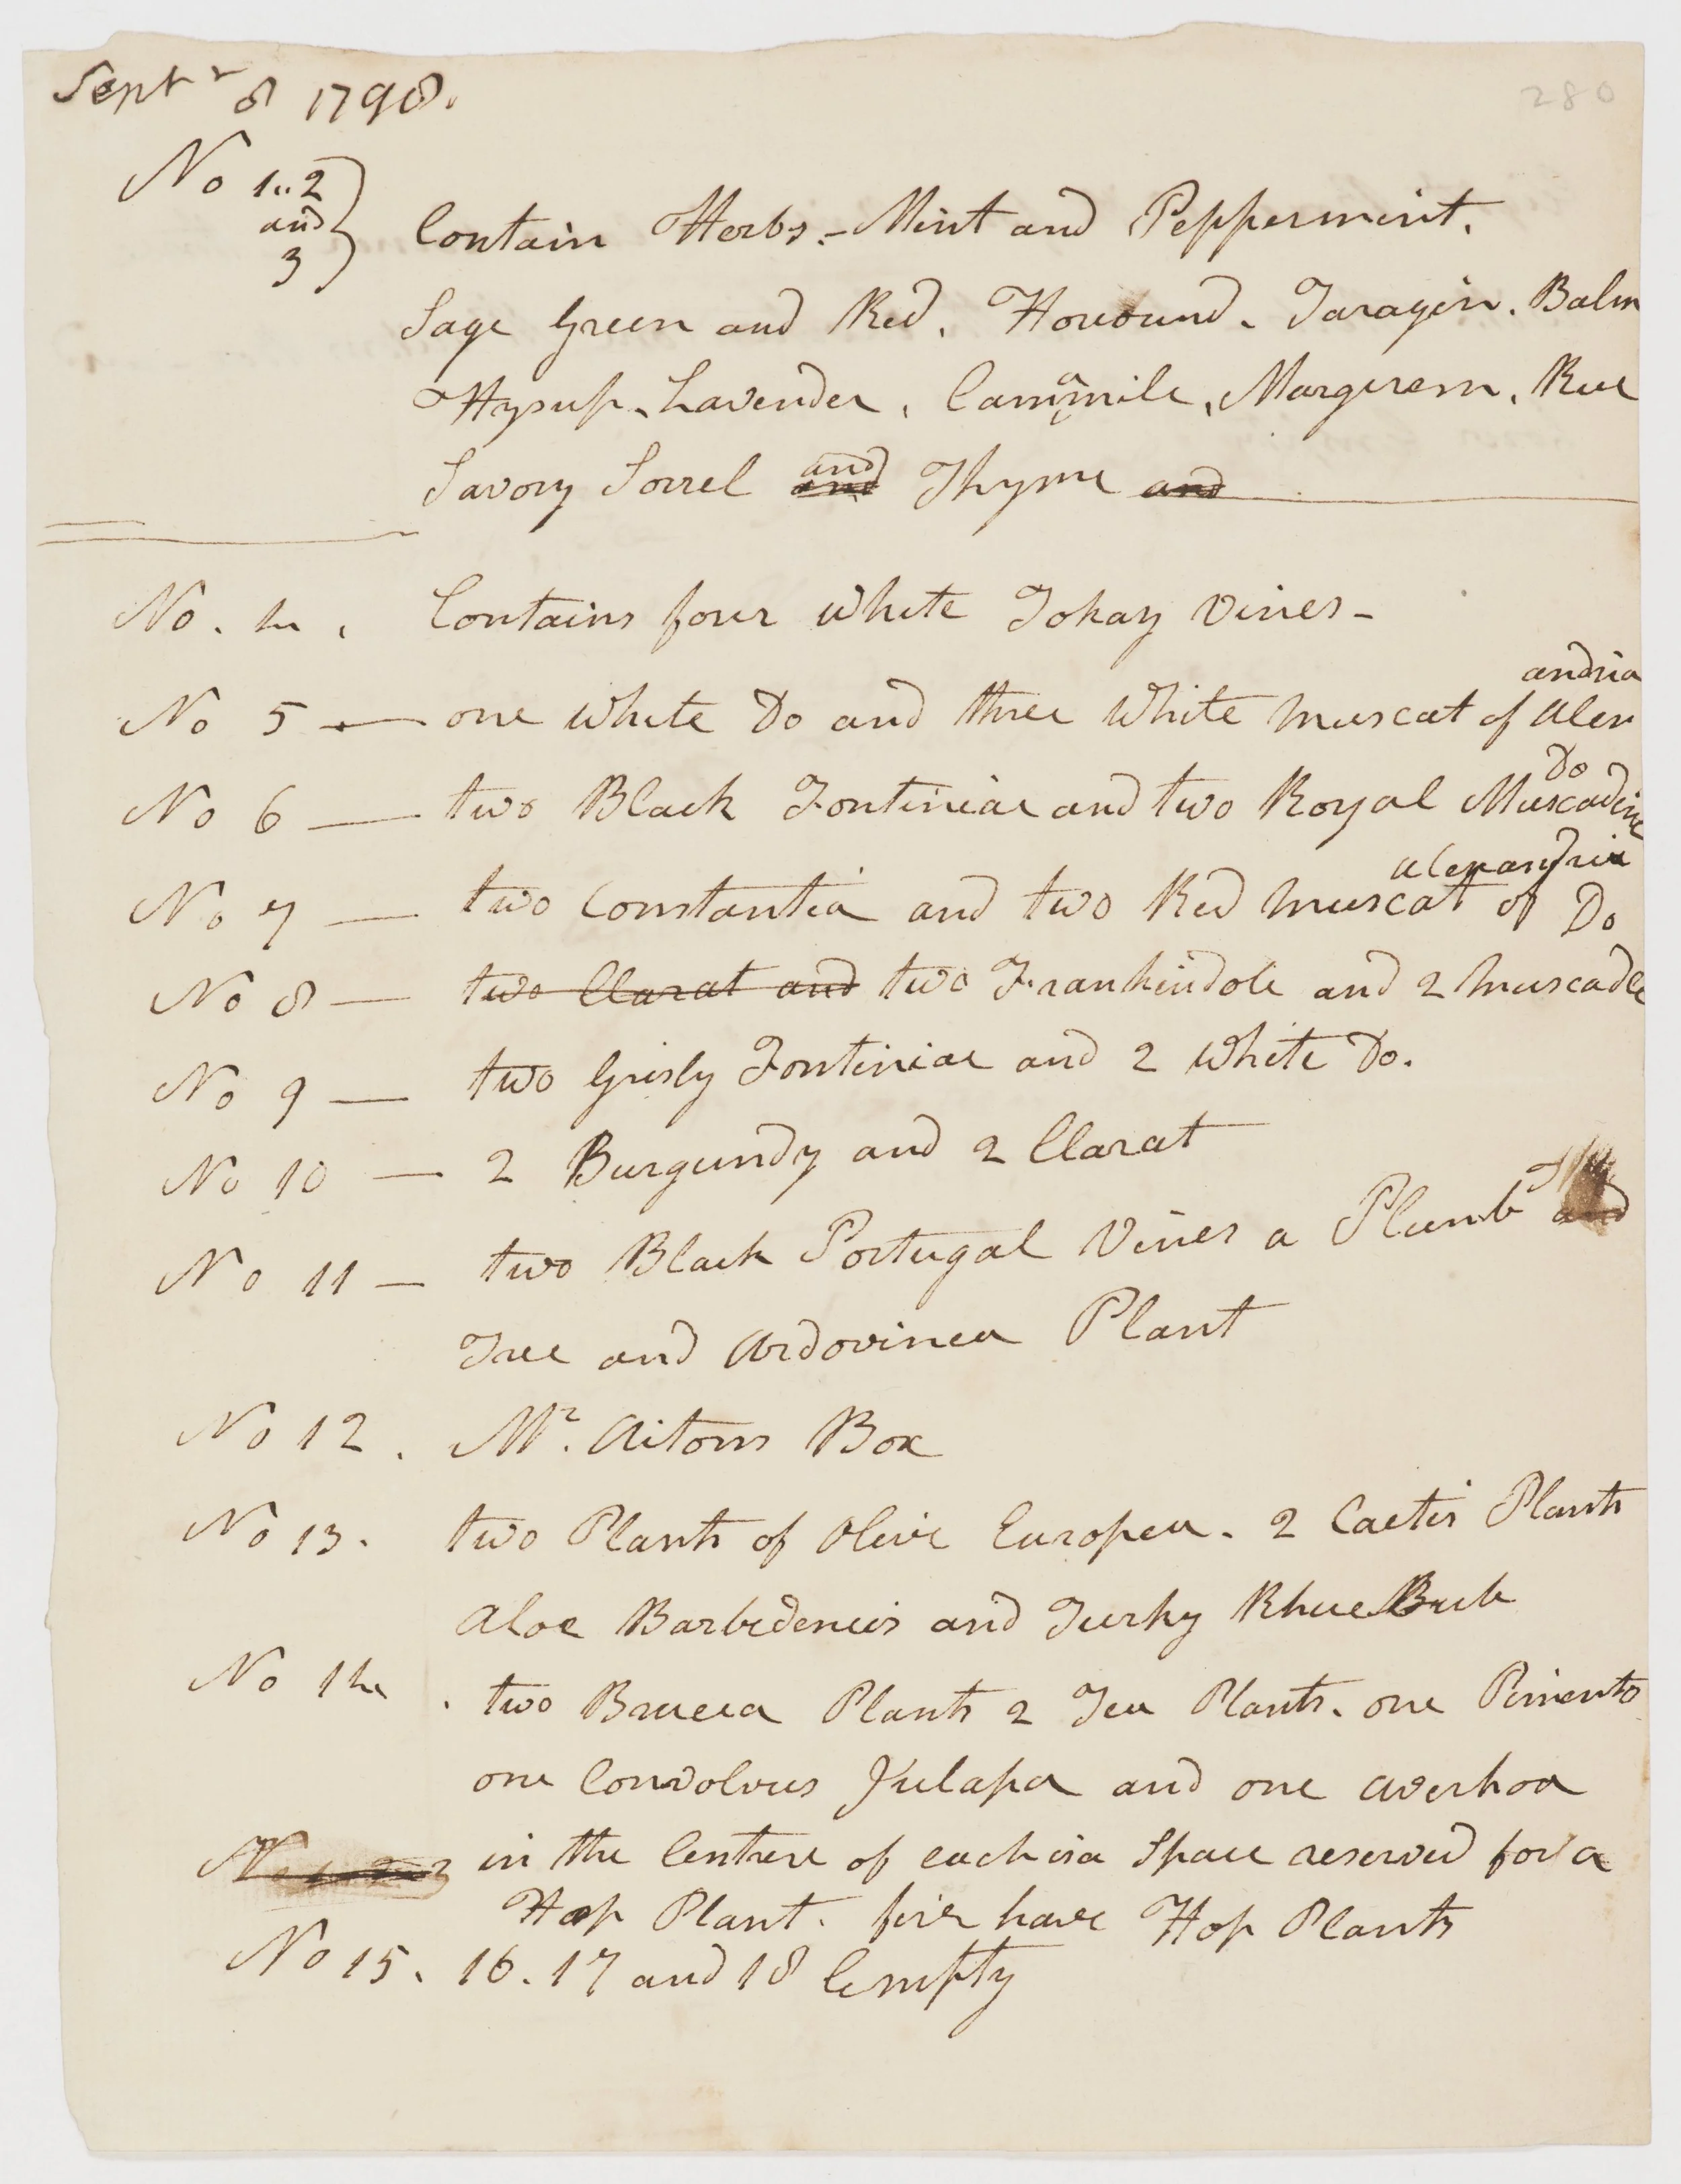 Septr 8 1798.
280
No 1..2
and
3
Contain Herbs.- Mint and Peppermint.
Sage Green and Red. Horound. Taragon. Balm
Hysup. Lavender. Cammamile. Margerem. Rue
Savory Sorrel and and Thyme and
No. 4. Contains four White Tokay Vines -
andria
No 5 — one White Do and three White Muscat of Alex
Do
No 6 — two Black Fontiniac and two Royal Muscadine
Alexandria
No 7 — two Constantia and two Red Muscat of Do
No 8 — two Clarat and two Frankindole and 2 Muscadle
No 9 — two Grisly Fontiniac and 2 White Do.
No 10 — 2 Burgundy and 2 Clarat
No 11 — two Black Portugal Vines a Plumb and
Tree and Ardovinea Plant
No 12. Mr. Aitons Box
No 13. two Plants of Olive Europea. 2 Cactis Plants
Aloe Barbedencis and Turky RhueBarb
No 14. two Brucea Plants 2 Tea Plants. one Pimento
one Convolvus Julapa and one Averhoa
in the Centere of each is a Space reserved for a
Hop Plant. five have Hop Plants
No 15. 16. 17 and 18 Empty